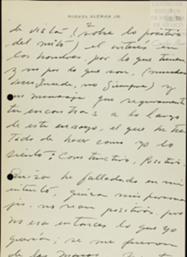 MIGUEL ALEMÁN JR.
2
de vista (sobre lo positivo
del mito) el interés en
los hombres por lo que tienen
y no por lo que son, (muchas
veces, no siempre) y
un mensaje que seguramente
encontrarás a lo largo
de este ensayo, el que he tra
tado de hacer como yo lo
siento: Constructivo, Positivo.
Quizá he fallado en mi
intento, quizá mis 
no sean positivos, pero
no era entonces lo que yo
quería; se me 
de las manos